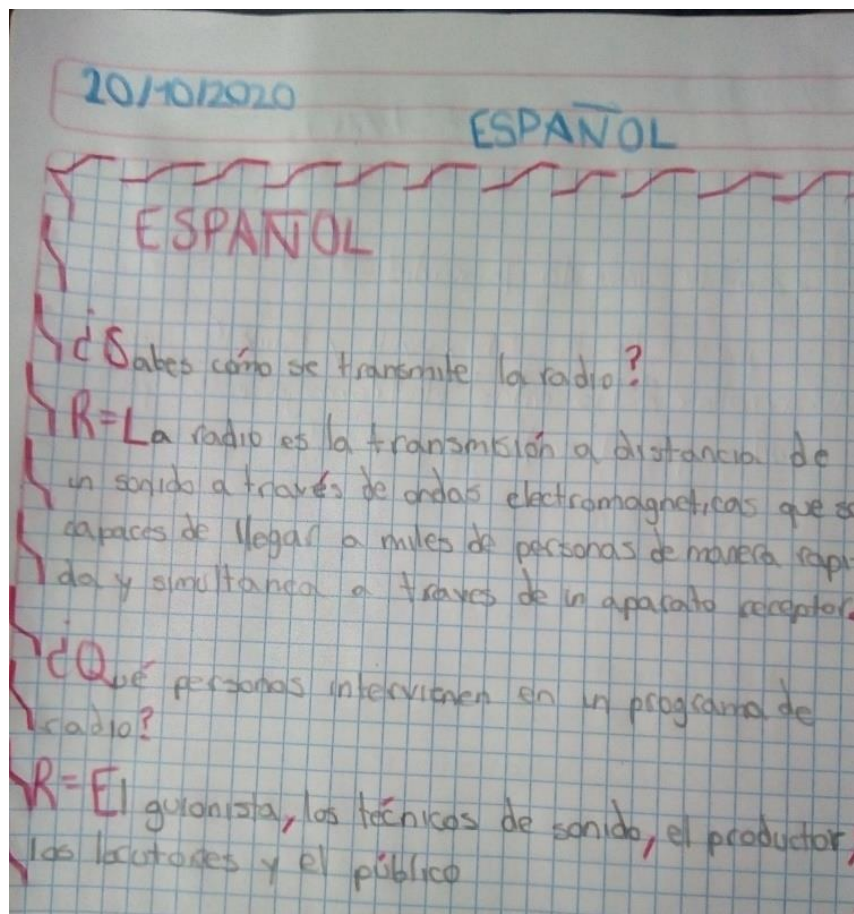 20/10/2020
ESPAÑOL
ESPAÑOL
¿Sabes cómo se transmite la radio?
R=La radio es la transmisión a distancia de
un sonido a través de ondas electromagneticas que
capaces de llegar a miles de personas de manera rapi
da y simultanea a traves de un aparato receptor.
¿Qué personas intervienen en un programa de
radio?
R=El guionista, los técnicos de sonido, el productor,
los locutores y el público